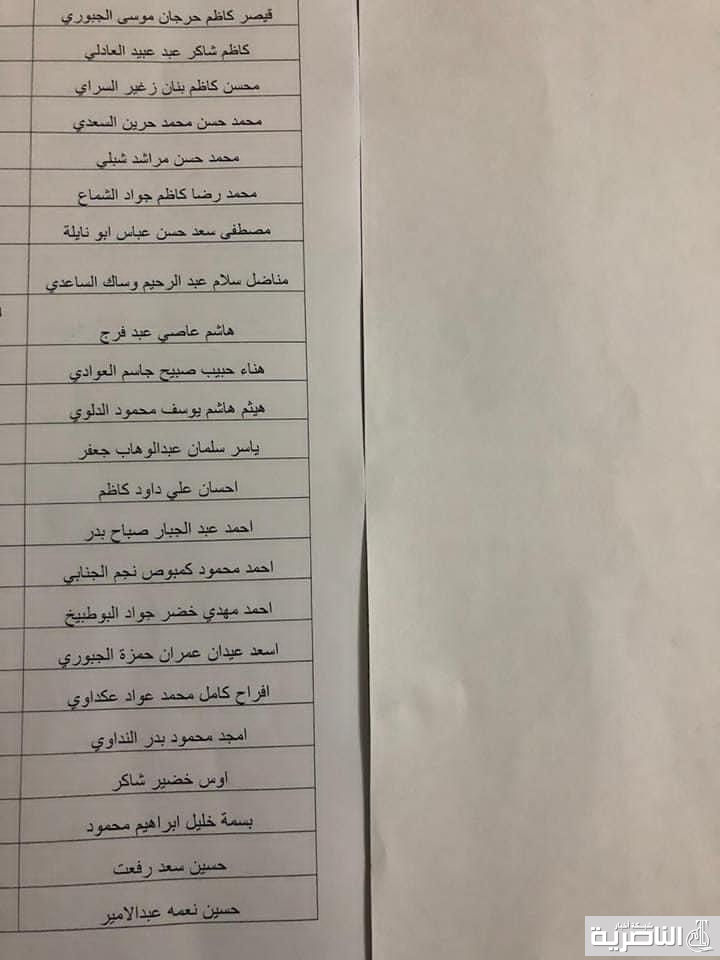 قيصر كاظم حرجان موسى الجبوري
كاظم شاكر عبد عبيد العادلي
محسن كاظم بنان زغير السراي
محمد حسن محمد حرين السعدي
محمد حسن مراشد شبلي
محمد رضا كاظم جواد الشماع
مصطفى سعد حسن عباس ابو نايلة
مناضل سلام عبد الرحيم وساك الساعدي
هاشم عاصي عبد فرج
هناء حبيب صبيح جاسم العوادي
هيثم هاشم يوسف محمود الدلوي
ياسر سلمان عبدالوهاب جعفر
احسان علي داود كاظم
احمد عبد الجبار صباح بدر
احمد محمود كمبوص نجم الجنابي
احمد مهدي خضر جواد البوطبيخ
اسعد عيدان عمران حمزة الجبوري
افراح كامل محمد عواد عكداوي
امجد محمود بدر النداوي
اوس خضير شاكر
بسمة خليل ابراهيم محمود
حسين سعد رفعت
حسين نعمه عبدالامير
شبكة اخبار
الناصرية